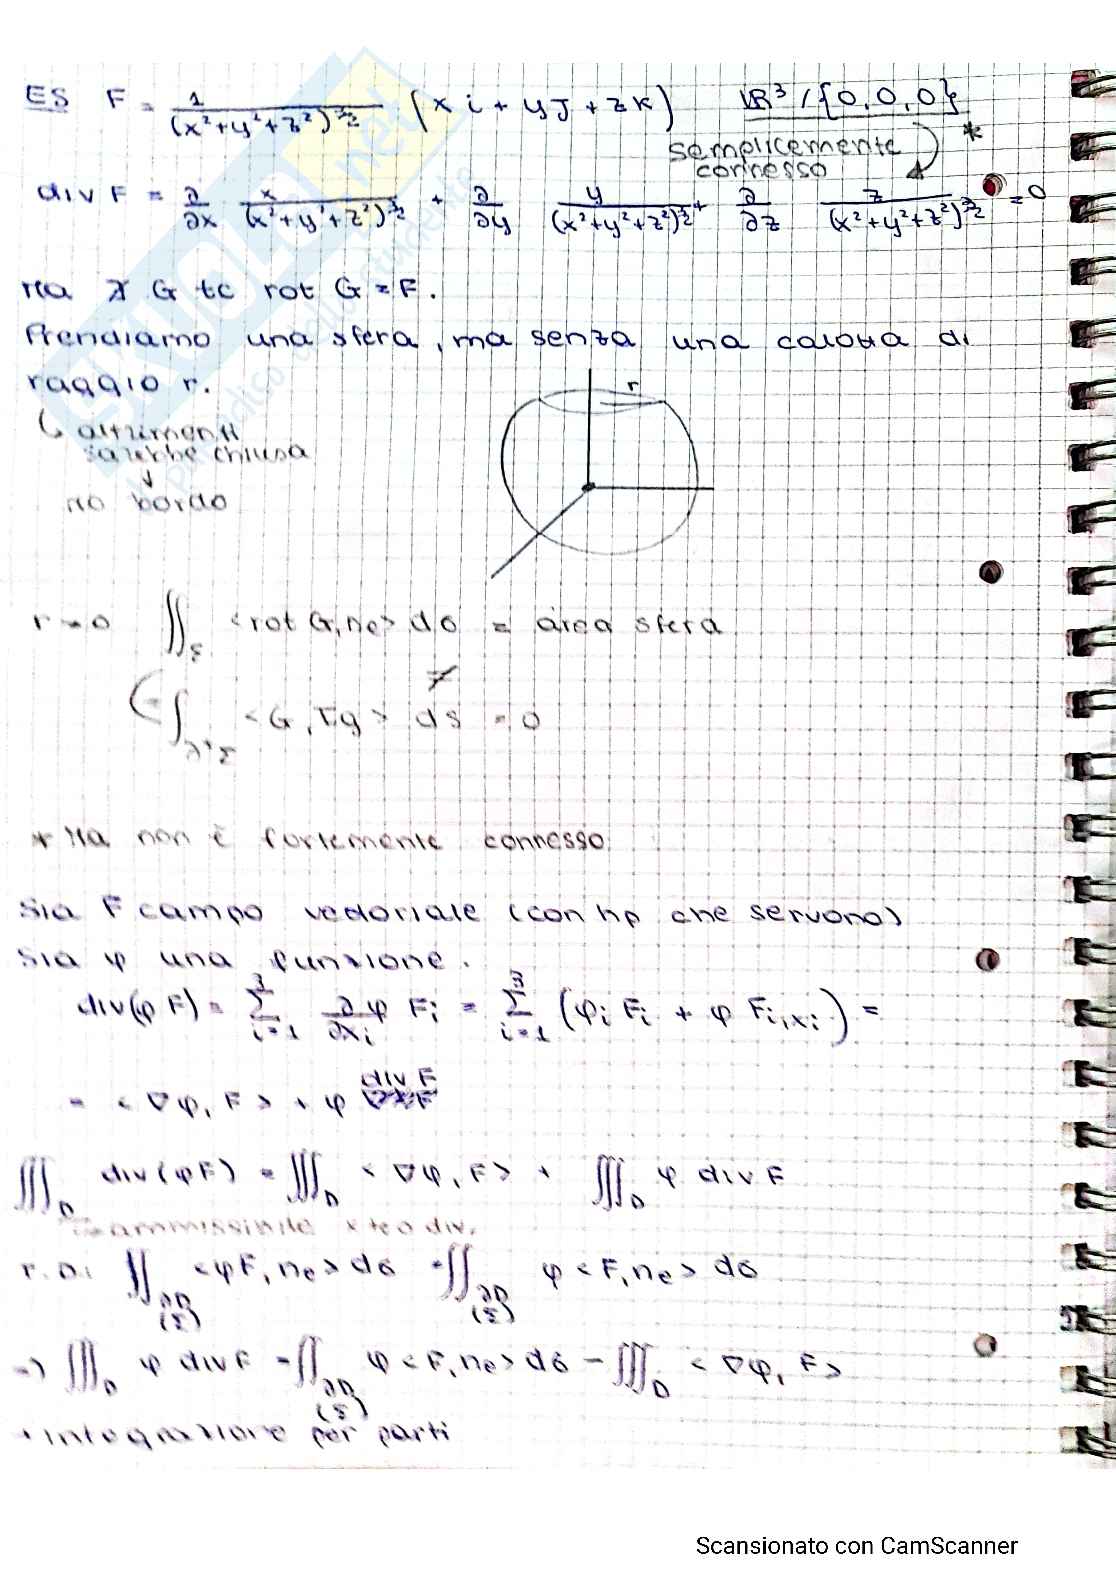 ES F = 1/(x²+y²+z²)^3/2 · (x i + y J + z k) ℝ³/{0,0,0}
semplicemente connesso *
div F = ∂/∂x x/(x²+y²+z²)^3/2 + ∂/∂y y/(x²+y²+z²)^3/2 + ∂/∂z z/(x²+y²+z²)^3/2 = 0
Ma ∄ G tc rot G = F.
Prendiamo una sfera, ma senza una calotta di
raggio r.
r
↳ altrimenti
sarebbe chiusa
↓
no bordo
r→0 ∬_Σ <rot G, ne> dσ = area sfera
≠
(= ∫_∂⁺Σ <G, Tg> ds = 0
* Ma non è fortemente connesso
Sia F campo vettoriale (con hp che servono)
Sia φ una funzione.
div(φ F) = Σ_{i=1}^3 ∂/∂xi φ Fi = Σ_{i=1}^3 (φi Fi + φ Fi,xi) =
= <∇φ, F> + φ div F
∭_D div(φF) = ∭_D <∇φ, F> + ∭_D φ div F
ammissibile x teo div.
T.D: ∬_∂D (Σ) <φF, ne> dσ = ∬_∂D (Σ) φ <F, ne> dσ
=> ∭_D φ div F = ∬_∂D (Σ) φ <F, ne> dσ - ∭_D <∇φ, F>
integrazione per parti
Scansionato con CamScanner